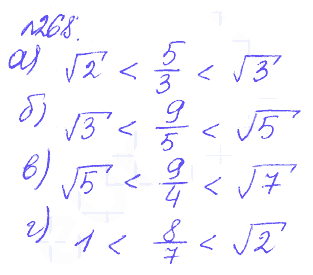 №268.
а) √2 < 5/3 < √3
б) √3 < 9/5 < √5
в) √5 < 9/4 < √7
г) 1 < 8/7 < √2